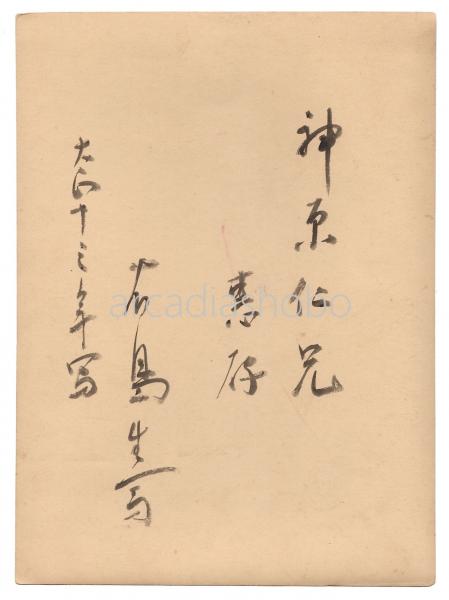 神原仁兄
恵存
有島生馬
大正十三年写
arcadiashobo